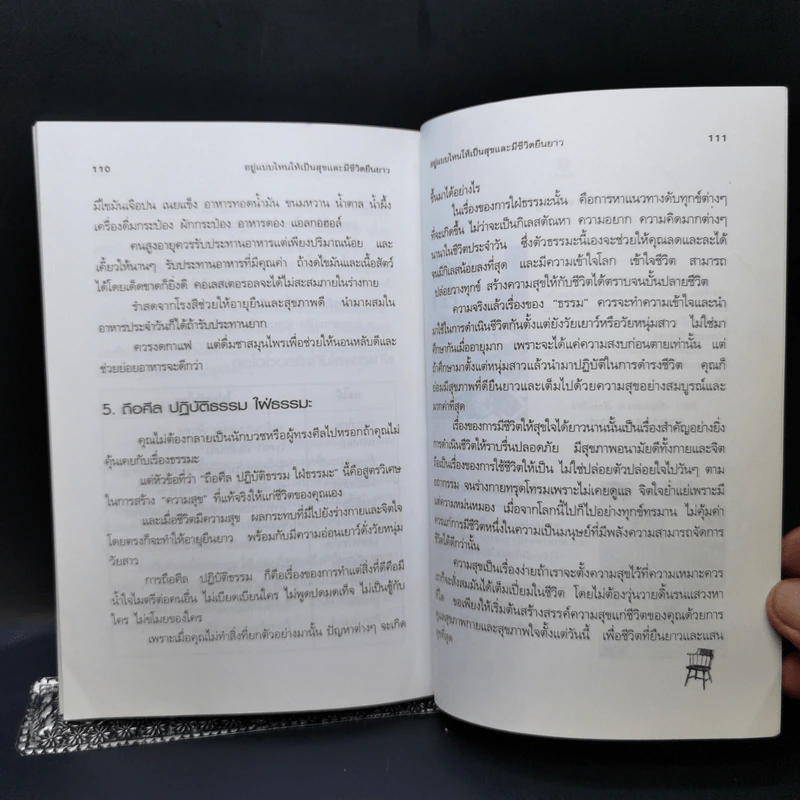 110
อยู่แบบไหนให้เป็นสุขและมีชีวิตยืนยาว
มีไขมันเจือปน เนยแข็ง อาหารทอดน้ำมัน ขนมหวาน น้ำตาล น้ำผึ้ง
เครื่องดื่มกระป๋อง ผักกระป๋อง อาหารดอง แอลกอฮอล์
คนสูงอายุควรรับประทานอาหารแต่เพียงปริมาณน้อย และ
เคี้ยวให้นานๆ รับประทานอาหารที่มีคุณค่า ถ้างดไขมันและเนื้อสัตว์
ได้โดยเด็ดขาดก็ยิ่งดี คอเลสเตอรอลจะได้ไม่สะสมภายในร่างกาย
รำสดจากโรงสีช่วยให้อายุยืนและสุขภาพดี นำมาผสมใน
อาหารประจำวันก็ได้ถ้ารับประทานยาก
ควรงดกาแฟ แต่ดื่มชาสมุนไพรเพื่อช่วยให้นอนหลับดีและ
ช่วยย่อยอาหารจะดีกว่า
5. ถือศีล ปฏิบัติธรรม ใฝ่ธรรมะ
คุณไม่ต้องกลายเป็นนักบวชหรือผู้ทรงศีลไปหรอกถ้าคุณไม่
คุ้นเคยกับเรื่องธรรมะ
แต่หัวข้อที่ว่า "ถือศีล ปฏิบัติธรรม ใฝ่ธรรมะ" นี้คือสูตรวิเศษ
ในการสร้าง "ความสุข" ที่แท้จริงให้แก่ชีวิตของคุณเอง
และเมื่อชีวิตมีความสุข ผลกระทบที่มีไปยังร่างกายและจิตใจ
โดยตรงก็จะทำให้อายุยืนยาว พร้อมกับมีความอ่อนเยาว์ดั่งวัยหนุ่ม
วัยสาว
การถือศีล ปฏิบัติธรรม ก็คือเรื่องของการทำแต่สิ่งที่ดีคือมี
น้ำใจไมตรีต่อคนอื่น ไม่เบียดเบียนใคร ไม่พูดปดมดเท็จ ไม่เป็นชู้กับ
ใคร ไม่ขโมยของใคร
เพราะเมื่อคุณไม่ทำสิ่งที่ยกตัวอย่างมานั้น ปัญหาต่างๆ จะเกิด
อยู่แบบไหนให้เป็นสุขและมีชีวิตยืนยาว
111
ขึ้นมาได้อย่างไร
ในเรื่องของการใฝ่ธรรมะนั้น คือการหาแนวทางดับทุกข์ต่างๆ
ที่จะเกิดขึ้น ไม่ว่าจะเป็นกิเลสตัณหา ความอยาก ความคิดมากต่างๆ
นานาในชีวิตประจำวัน ซึ่งตัวธรรมะนี้เองจะช่วยให้คุณลดและละได้
จนมีกิเลสน้อยลงที่สุด และมีความเข้าใจโลก เข้าใจชีวิต สามารถ
ปล่อยวางทุกข์ สร้างความสุขให้กับชีวิตได้ตราบจนบั้นปลายชีวิต
ความจริงแล้วเรื่องของ "ธรรม" ควรจะทำความเข้าใจและนำ
มาใช้ในการดำเนินชีวิตกันตั้งแต่ยังวัยเยาว์หรือวัยหนุ่มสาว ไม่ใช่มา
ศึกษากันเมื่ออายุมาก เพราะจะได้แค่ความสงบก่อนตายเท่านั้น แต่
ถ้าศึกษามาตั้งแต่หนุ่มสาวแล้วนำมาปฏิบัติในการดำรงชีวิต คุณก็
ย่อมมีสุขภาพที่ดียืนยาวและเต็มไปด้วยความสุขอย่างสมบูรณ์และ
มากค่าที่สุด
เรื่องของการมีชีวิตให้สุขใจได้ยาวนานนั้นเป็นเรื่องสำคัญอย่างยิ่ง
การดำเนินชีวิตให้ราบรื่นปลอดภัย มีสุขภาพอนามัยดีทั้งกายและจิต
ถือเป็นเรื่องของการใช้ชีวิตให้เป็น ไม่ใช่ปล่อยตัวปล่อยใจไปวันๆ ตาม
ยถากรรม จนร่างกายทรุดโทรมเพราะไม่เคยดูแล จิตใจย่ำแย่เพราะมี
แต่ความหม่นหมอง เมื่อจากโลกนี้ไปก็ไปอย่างทุกข์ทรมาน ไม่คุ้มค่า
ควรแก่การมีชีวิตหนึ่งในความเป็นมนุษย์ที่มีพลังความสามารถจัดการ
ชีวิตได้ดีกว่านั้น
ความสุขเป็นเรื่องง่ายถ้าเราจะตั้งความสุขไว้ที่ความเหมาะควร
เราก็จะสั่งสมมันได้เต็มเปี่ยมในชีวิต โดยไม่ต้องวุ่นวายดิ้นรนแสวงหา
ที่ใด ขอเพียงให้เริ่มต้นสร้างสรรค์ความสุขแก่ชีวิตของคุณด้วยการ
ดูแลสุขภาพกายและสุขภาพใจตั้งแต่วันนี้ เพื่อชีวิตที่ยืนยาวและแสน
สุขที่สุด